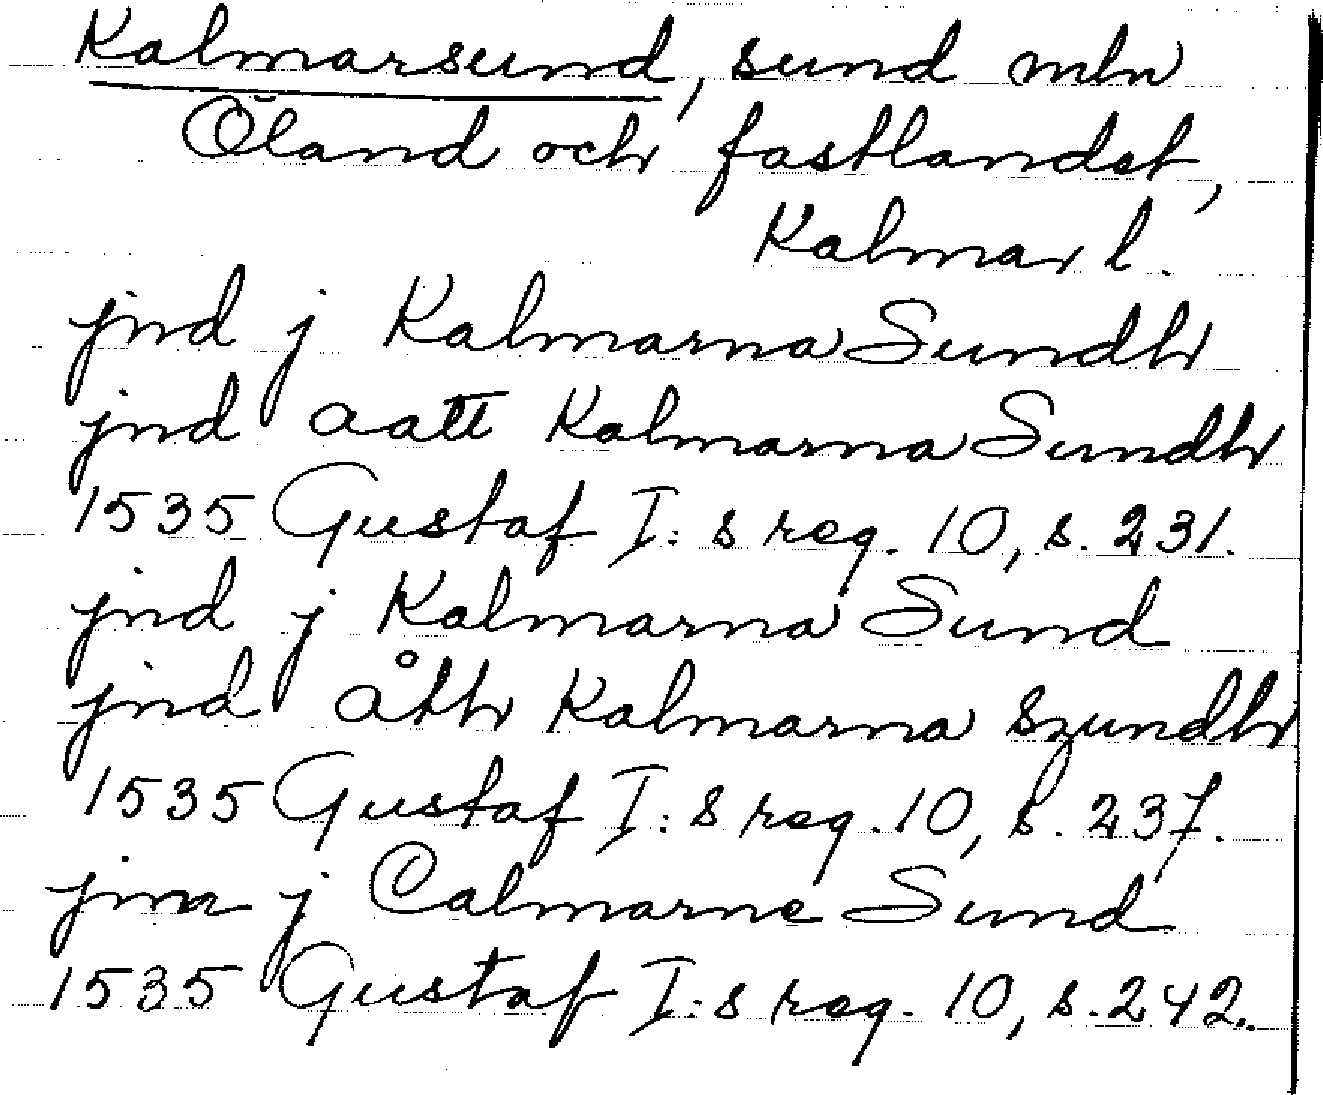 Kalmarsund, sund mln
Öland och fastlandet,
Kalmar l.
jnd j Kalmarna Sundh
jnd aatt Kalmarna Sundh
1535 Gustaf I:s reg. 10, s. 231.
jnd j Kalmarna Sund
jnd åth Kalmarna Szundh
1535 Gustaf I:s reg. 10, s. 237.
jnn j Calmarne Sund
1535 Gustaf I:s reg. 10, s. 242.